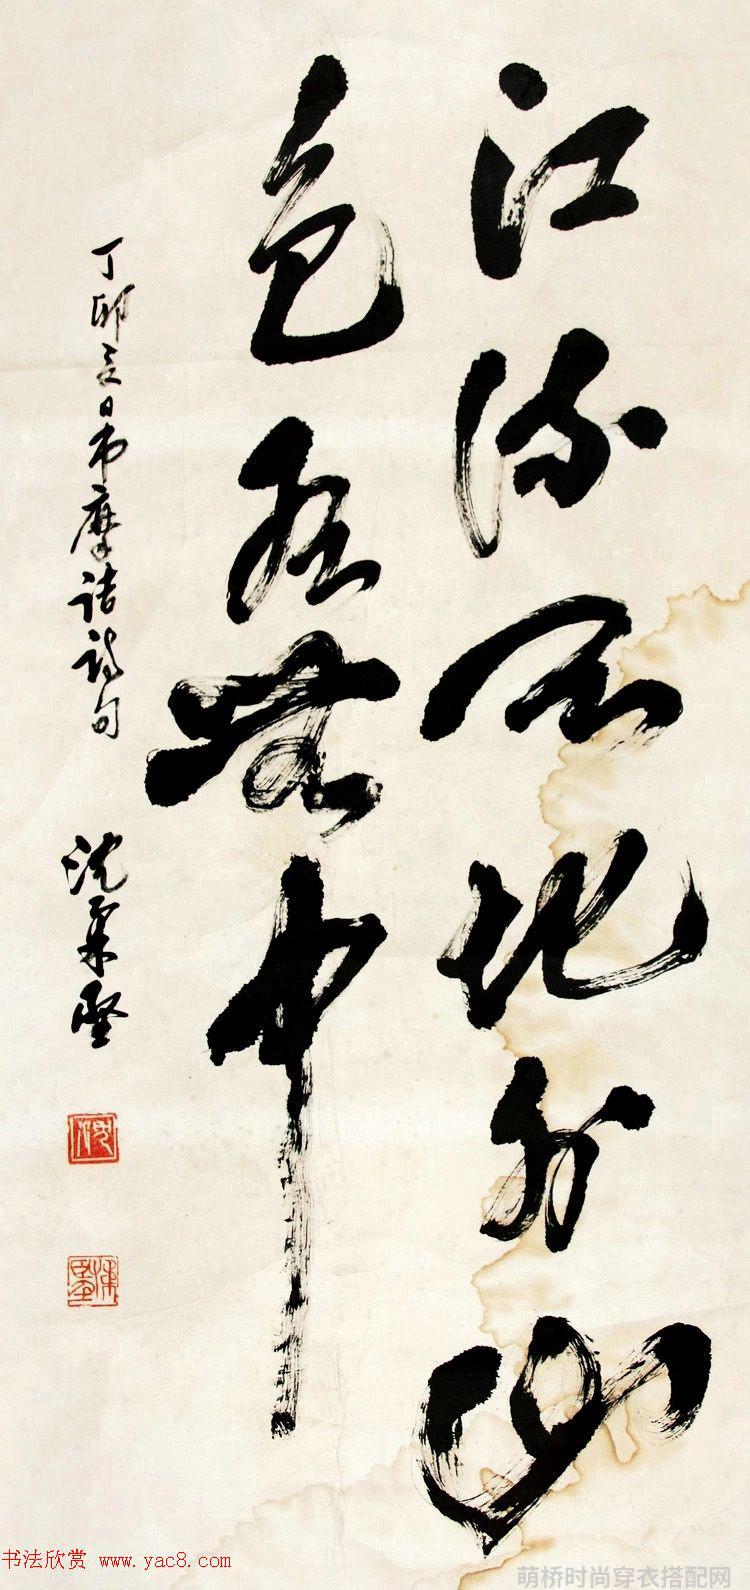 江流天地外山
色有無中
丁卯夏日書摩诘诗句
沈
书法欣赏 www.yac8.com
萌桥时尚穿衣搭配网